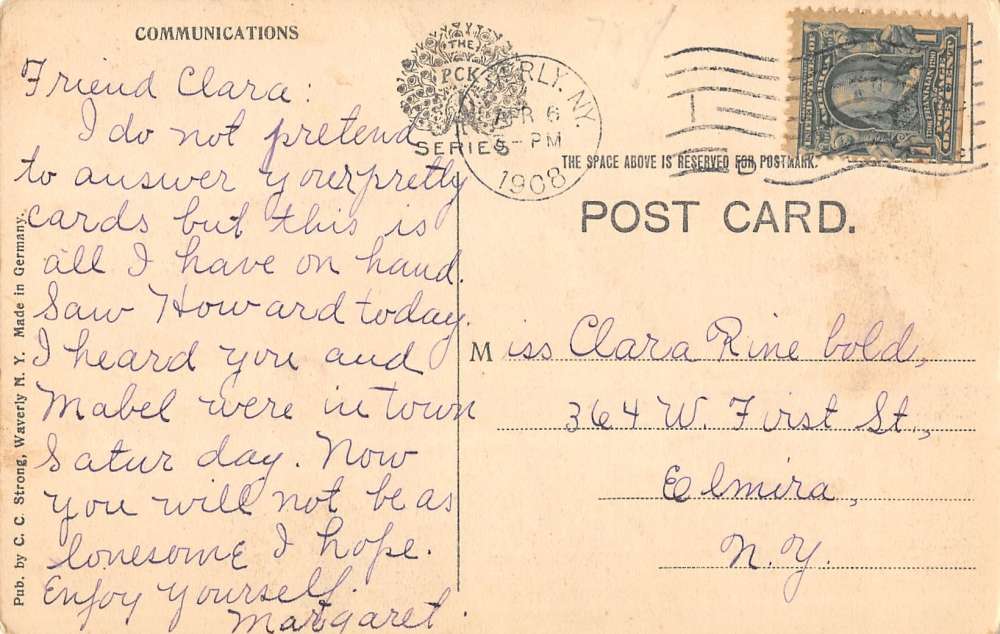 COMMUNICATIONS
Friend Clara:
I do not pretend
to answer your pretty
cards but this is
all I have on hand.
Saw Howard today.
I heard you and
Mabel were in town
Saturday. Now
you will not be as
lonesome I hope.
Enjoy yourself.
Margaret.
Pub. by C. C. Strong, Waverly N. Y. Made in Germany.
THE
PCK
SERIES
ERLY. N.Y.
APR 6
PM
1908
THE SPACE ABOVE IS RESERVED FOR POSTMARK.
POST CARD.
Miss Clara Rinebold,
364 W. First St.,
Elmira,
N.Y.